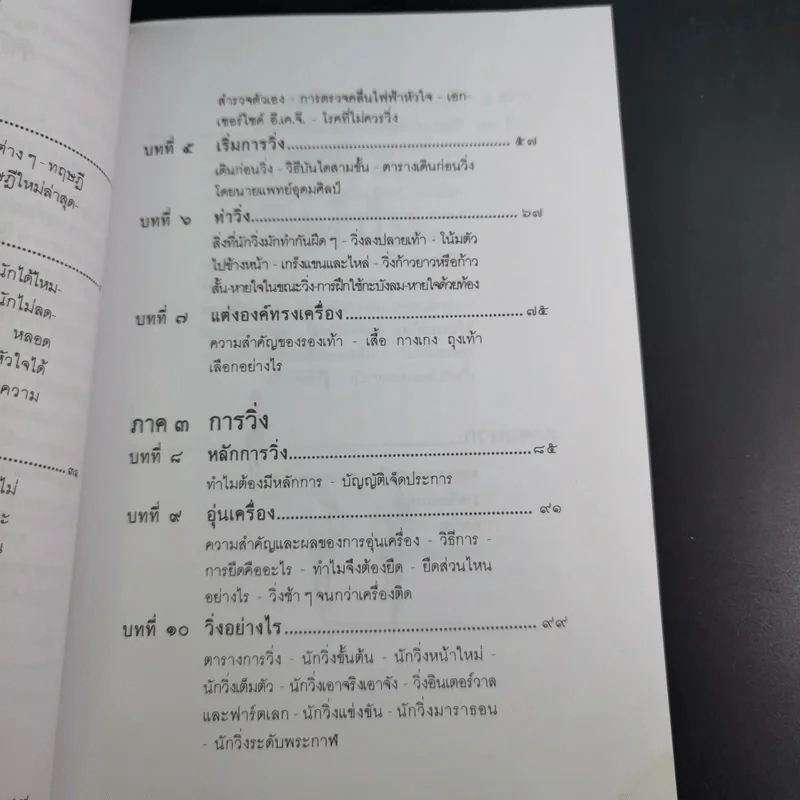 ต่าง ๆ - ทฤษฎี
ษฎีใหม่ล่าสุด-
นักได้ไหม-
นักไม่ลด-
หลอด
หัวใจได้
ความ
ไม่
สำรวจตัวเอง - การตรวจคลื่นไฟฟ้าหัวใจ - เอก-
เซอร์ไซด์ อี.เค.จี. - โรคที่ไม่ควรวิ่ง
บทที่ ๕ เริ่มการวิ่ง ๕๗
เดินก่อนวิ่ง - วิธีบันไดสามขั้น - ตารางเดินก่อนวิ่ง
โดยนายแพทย์อุดมศิลป์
บทที่ ๖ ท่าวิ่ง ๖๗
สิ่งที่นักวิ่งมักทำกันผิด ๆ - วิ่งลงปลายเท้า - โน้มตัว
ไปข้างหน้า - เกร็งแขนและไหล่ - วิ่งก้าวยาวหรือก้าว
สั้น-หายใจในขณะวิ่ง-การฝึกใช้กะบังลม-หายใจด้วยท้อง
บทที่ ๗ แต่งองค์ทรงเครื่อง ๗๕
ความสำคัญของรองเท้า - เสื้อ กางเกง ถุงเท้า
เลือกอย่างไร
ภาค ๓ การวิ่ง
บทที่ ๘ หลักการวิ่ง ๘๕
ทำไมต้องมีหลักการ - บัญญัติเจ็ดประการ
บทที่ ๙ อุ่นเครื่อง ๙๑
ความสำคัญและผลของการอุ่นเครื่อง - วิธีการ -
การยืดคืออะไร - ทำไมจึงต้องยืด - ยืดส่วนไหน
อย่างไร - วิ่งช้า ๆ จนกว่าเครื่องติด
บทที่ ๑๐ วิ่งอย่างไร ๙๙
ตารางการวิ่ง - นักวิ่งขั้นต้น - นักวิ่งหน้าใหม่ -
นักวิ่งเต็มตัว - นักวิ่งเอาจริงเอาจัง - วิ่งอินเตอร์วาล
และฟาร์ตเลก - นักวิ่งแข่งขัน - นักวิ่งมาราธอน
- นักวิ่งระดับพระกาฬ